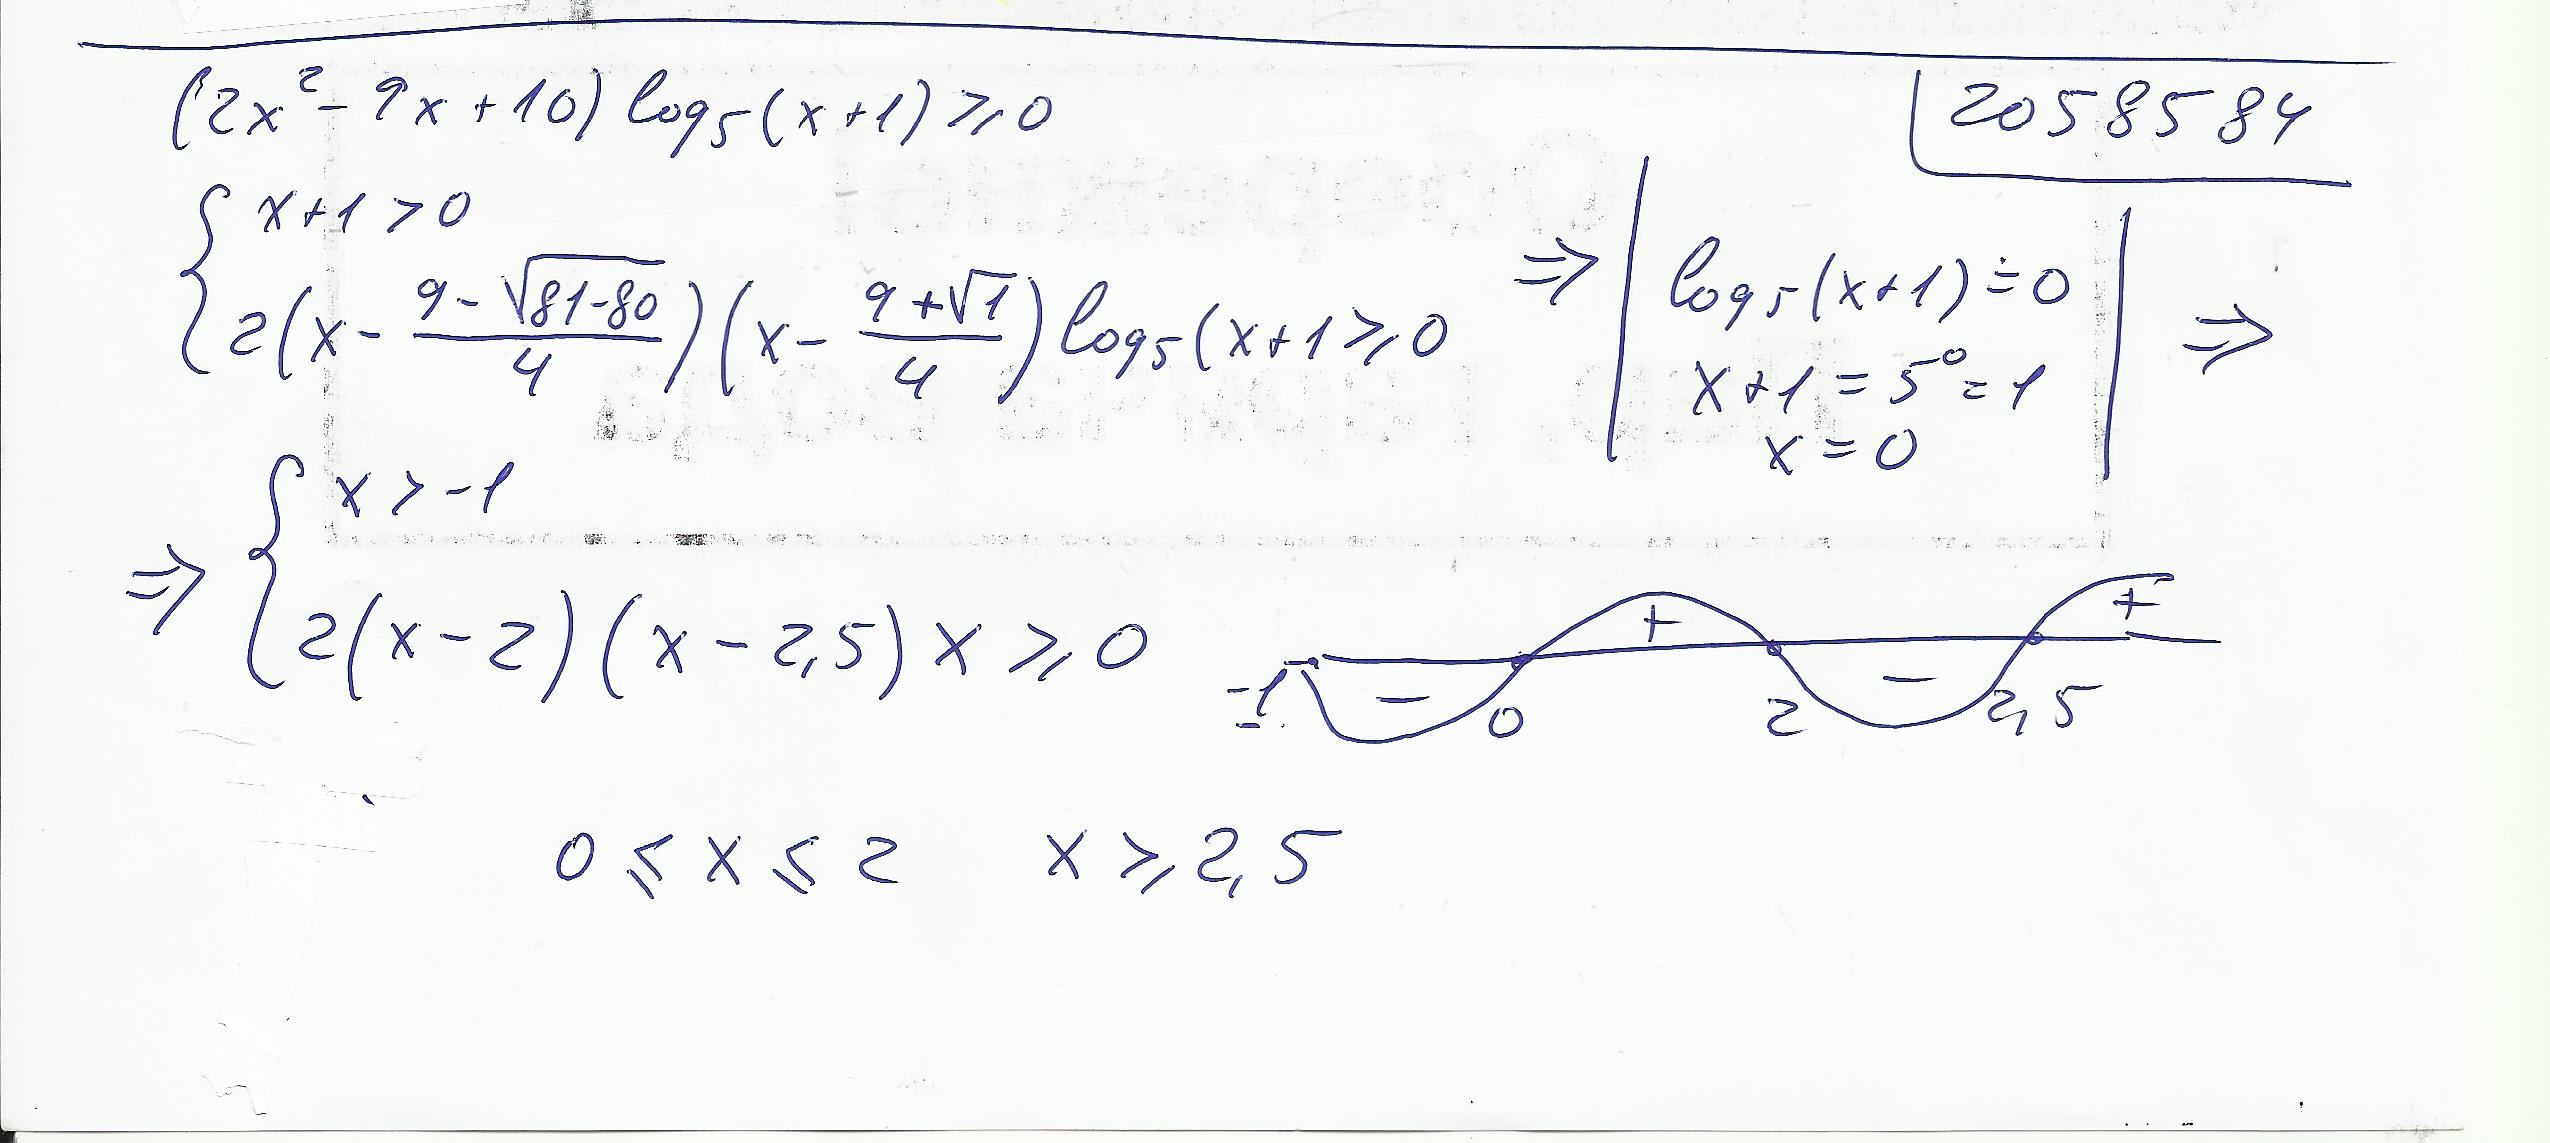 (2x² - 9x + 10) log₅(x+1) ⩾ 0
2058584
{ x+1 > 0
2(x - (9 - √(81-80))/4)(x - (9 + √1)/4) log₅(x+1 ⩾ 0 ⇒
| log₅(x+1) = 0
x+1 = 5⁰ = 1
x = 0 | ⇒
⇒ { x > -1
2(x - 2)(x - 2,5) x ⩾ 0
- + - +
-1 0 2 2,5
0 ⩽ x ⩽ 2 x ⩾ 2,5